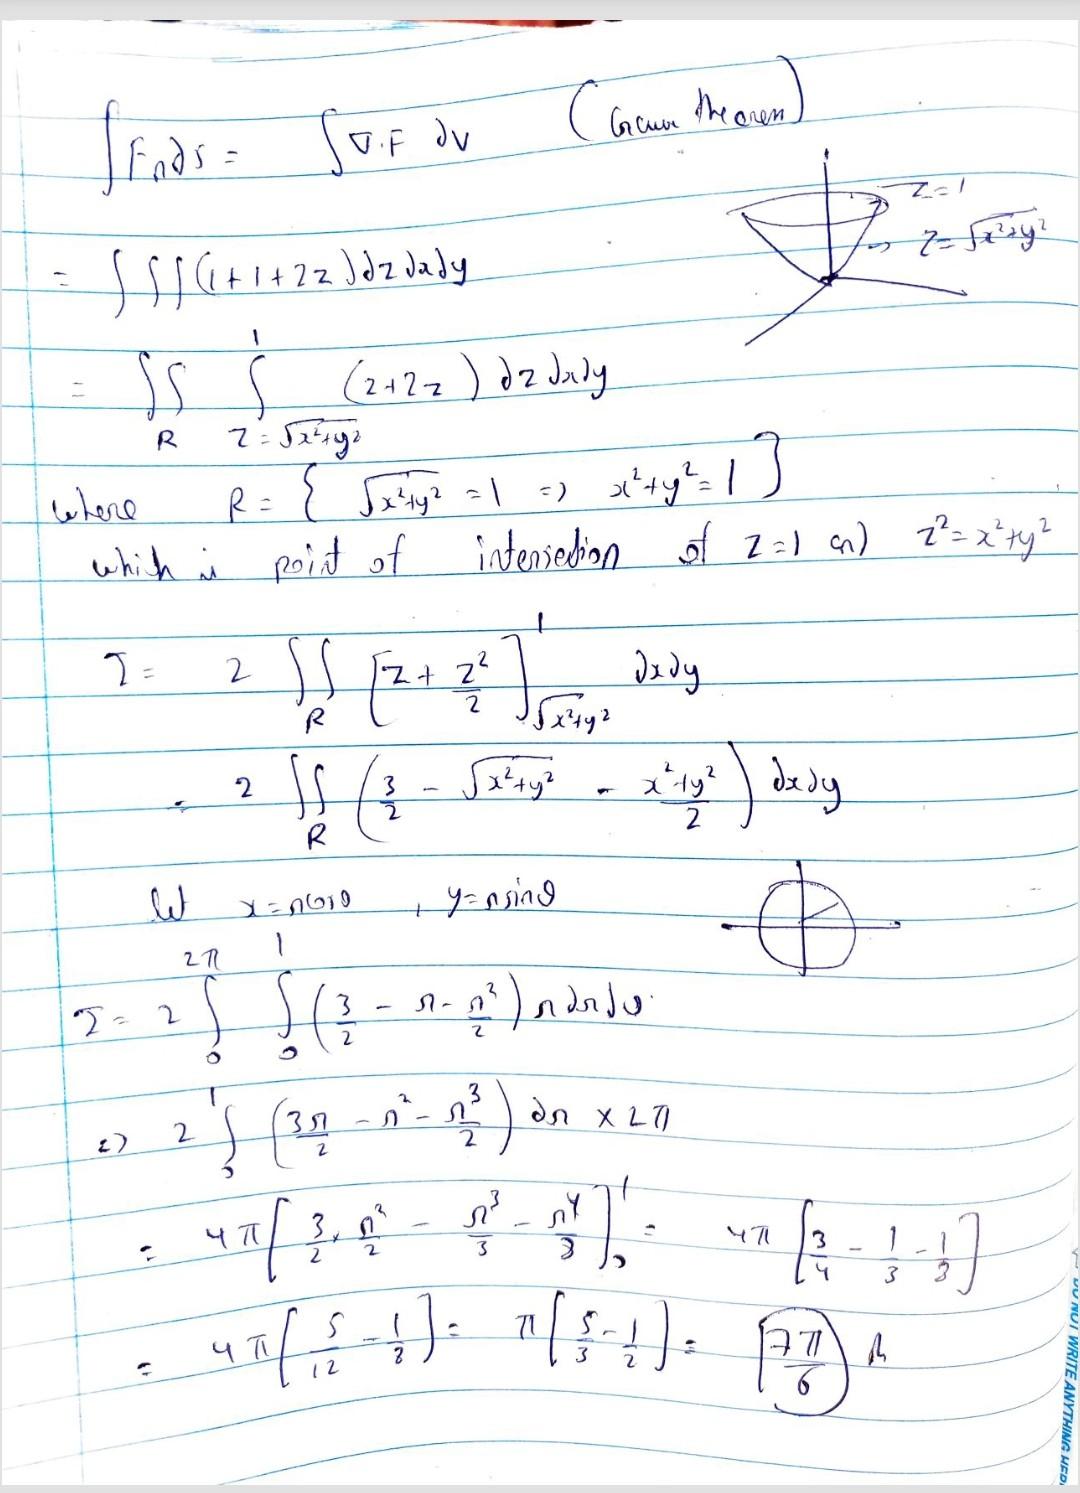 ∫ F.n ds = ∫ ∇.F dv (Gauss Theorem)
z=1
z=√(x²+y²)
= ∫∫∫ (1+1+2z) dz dx dy
= ∫∫_R ∫_{z=√(x²+y²)}^1 (2+2z) dz dx dy
where R = { √(x²+y²) = 1 => x²+y² = 1 }
which is point of intersection of z=1 and z²=x²+y²
I = 2 ∫∫_R [z + z²/2]_{√(x²+y²)}^1 dx dy
= 2 ∫∫_R (3/2 - √(x²+y²) - (x²+y²)/2) dx dy
let x=rcosθ , y=rsinθ
I = 2 ∫_0^{2π} ∫_0^1 (3/2 - r - r²/2) r dr dθ
=> 2 ∫_0^1 (3r/2 - r² - r³/2) dr × 2π
= 4π [3/2 × r²/2 - r³/3 - r⁴/8]_0^1 = 4π [3/4 - 1/3 - 1/8]
= 4π [5/12 - 1/8] = π [5/3 - 1/2] = 7π/6
DO NOT WRITE ANYTHING HERE